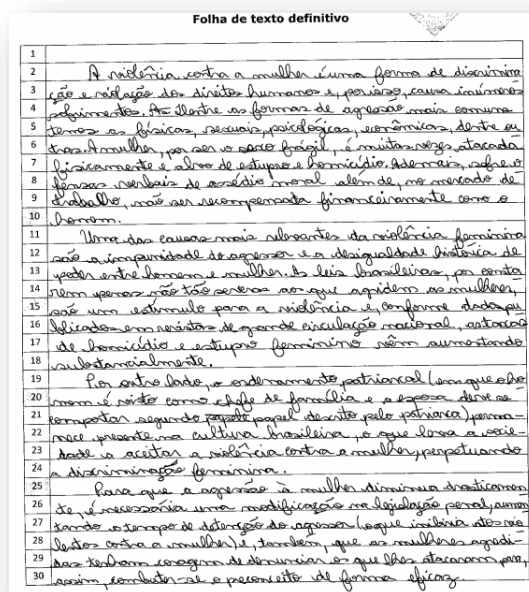 Folha de texto definitivo
1
2 A violência contra a mulher é uma forma de discrimina
3 ção e violação dos direitos humanos e, por isso, causa inúmeros
4 sofrimentos. As dentre as formas de agressão mais comuns
5 temos as físicas, sexuais, psicológicas, econômicas, dentre ou
6 tras. A mulher, por ser o sexo frágil, é muitas vezes, atacada
7 fisicamente e alvo de estupro e homicídio. Ademais, sofre o
8 fensas verbais de assédio moral além de, no mercado de
9 trabalho, não ser recompensada financeiramente como o
10 homem.
11 Uma das causas mais relevantes da violência feminina
12 são a impunidade do agressor e a desigualdade histórica de
13 poder entre homem e mulher. As leis brasileiras, por conte
14 rem penas não tão severas aos que agridem as mulheres,
15 são um estímulo para a violência e, conforme dados pu
16 blicados em revistas de grande circulação nacional, as taxas
17 de homicídio e estupro feminino vêm aumentando
18 substancialmente.
19 Por outro lado, o ordenamento patriarcal (em que o ho
20 mem é visto como chefe de família e a esposa deve se
21 comportar segundo papel descrito pelo patriarca) perma
22 nece presente na cultura brasileira, o que leva a socie-
23 dade a aceitar a violência contra a mulher, perpetuando
24 a discriminação feminina.
25 Para que a agressão à mulher diminua drasticamen
26 te, é necessária uma modificação na legislação penal, aumen
27 tando o tempo de detenção do agressor (o que inibiria atos vio
28 lentos contra a mulher) e, também, que as mulheres agredi-
29 das tenham coragem de denunciar os que lhes atacaram para,
30 assim, combater-se o preconceito de forma eficaz.